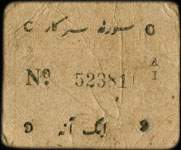 سورنہ سرکار
No. 52381 A/1
ایک آنہ